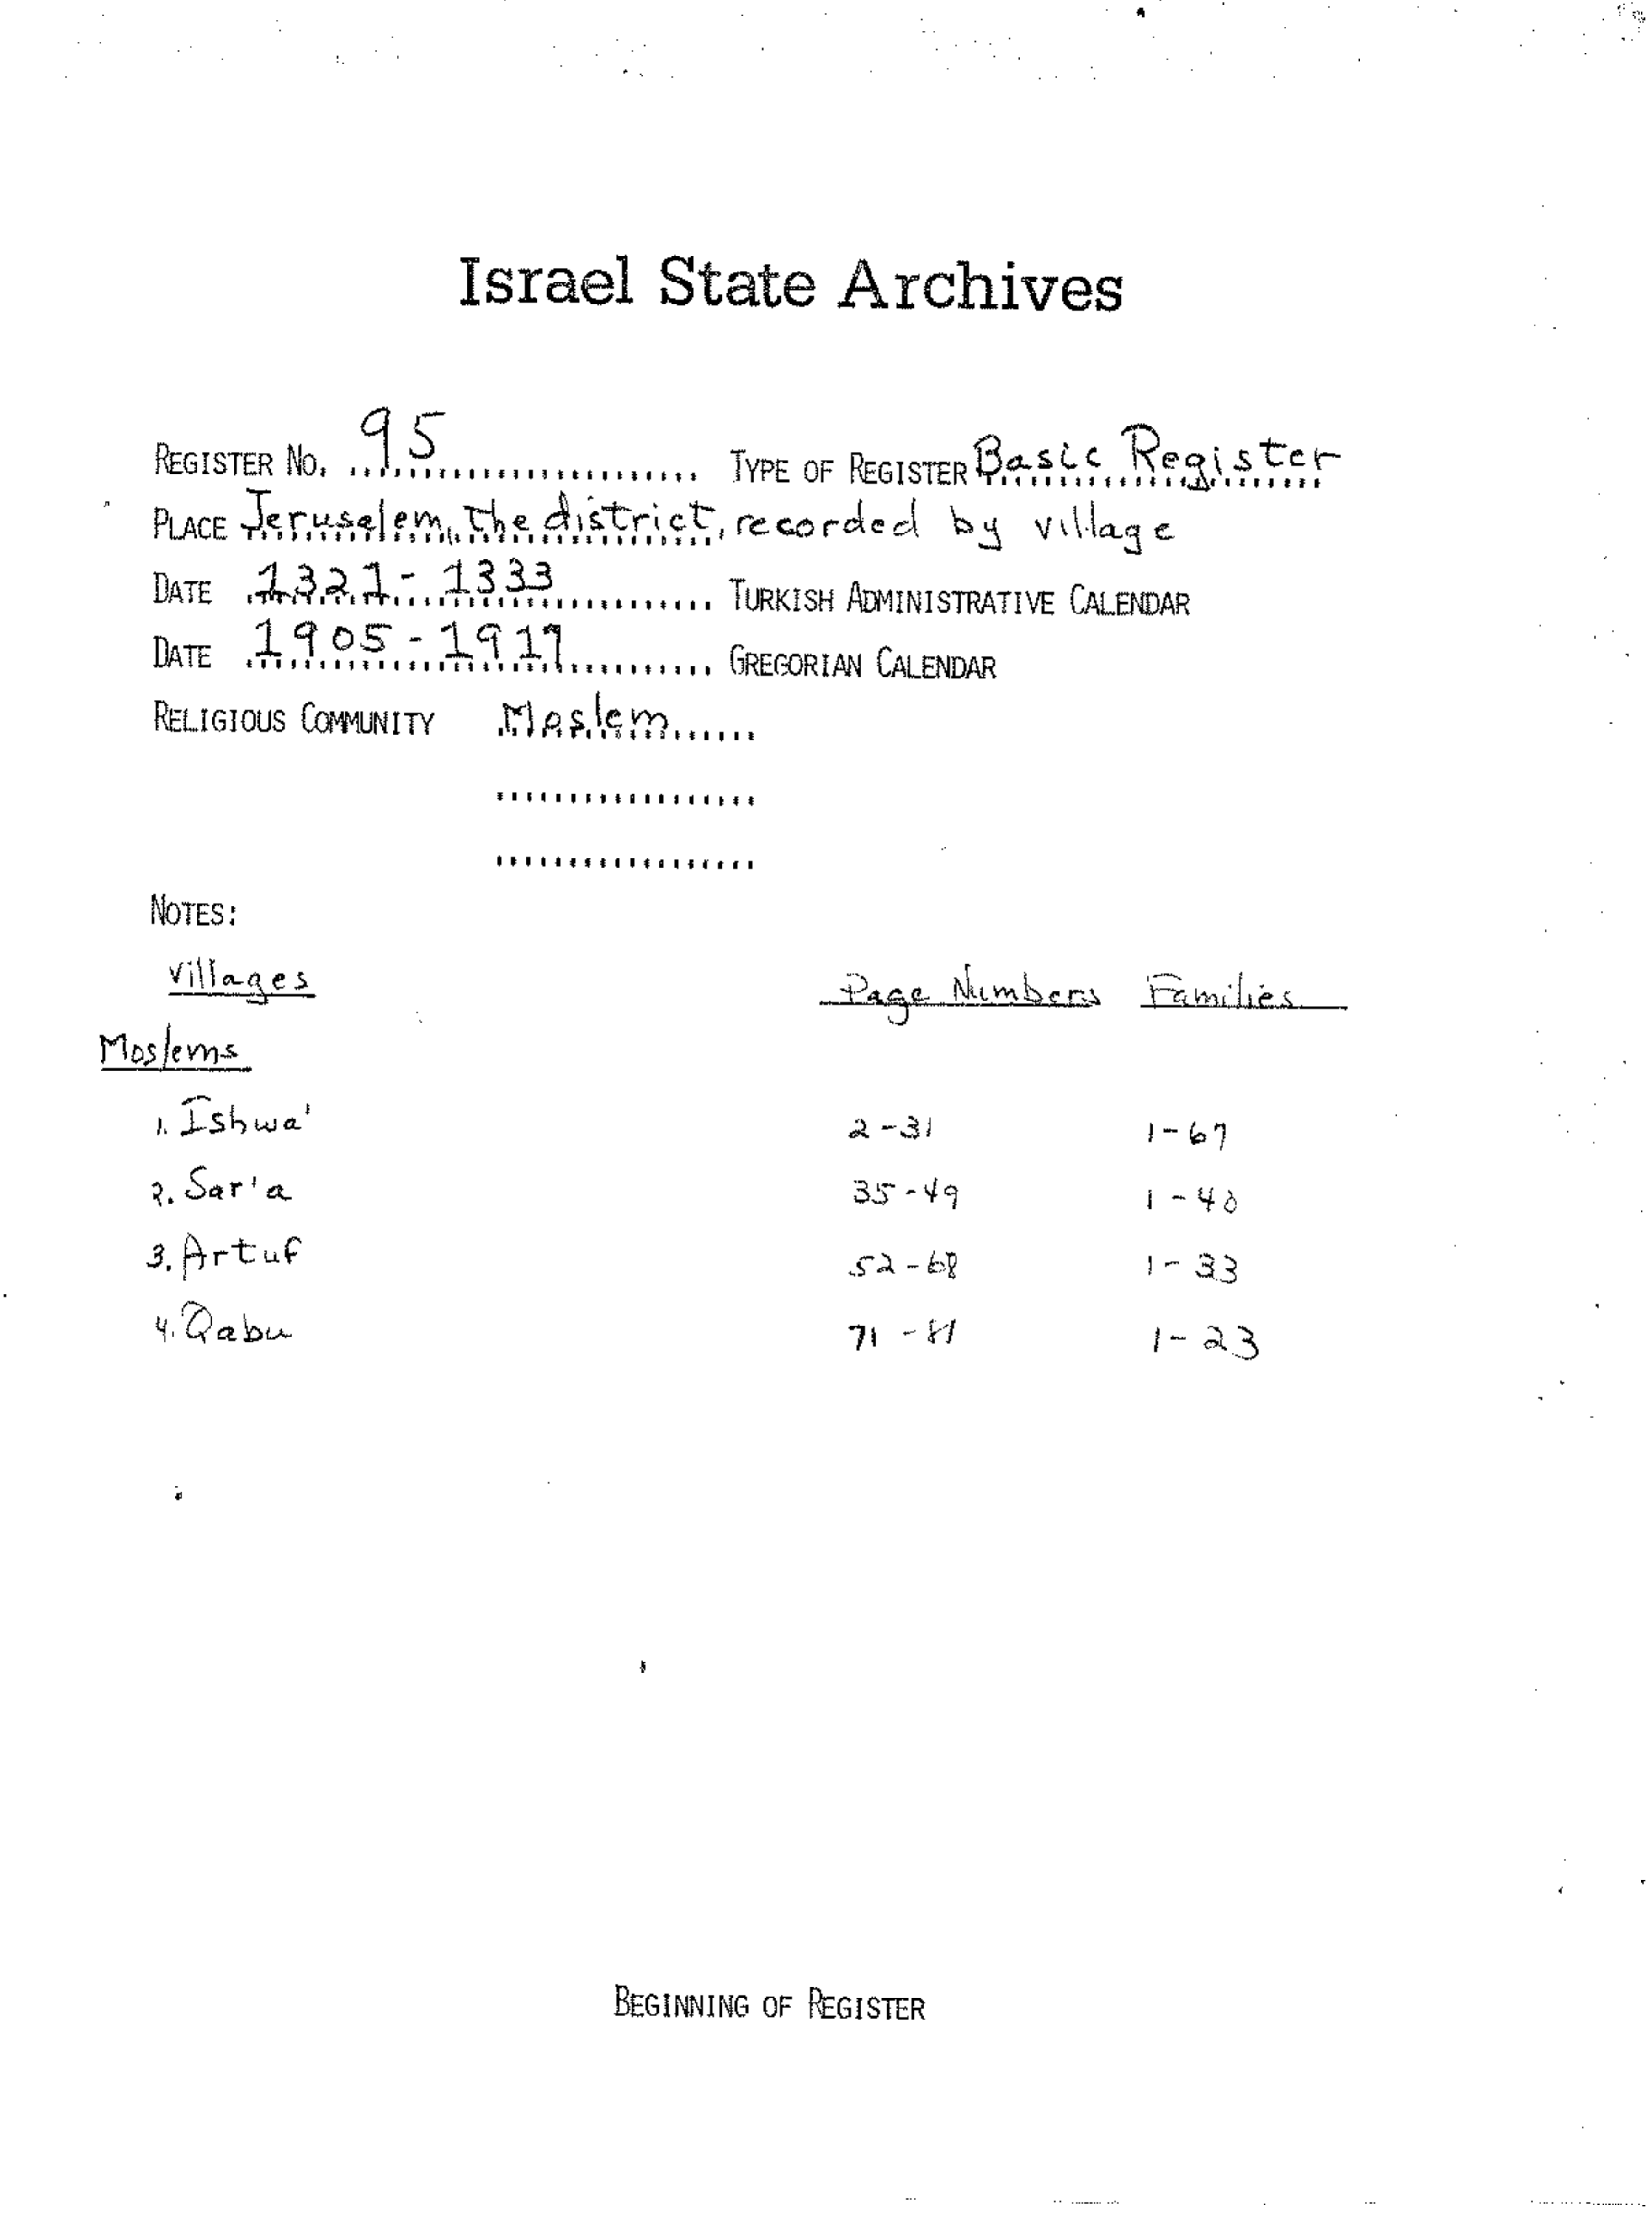 Israel State Archives
REGISTER NO. 95 TYPE OF REGISTER Basic Register
PLACE Jerusalem, the district, recorded by village
DATE 1321-1333 TURKISH ADMINISTRATIVE CALENDAR
DATE 1905-1917 GREGORIAN CALENDAR
RELIGIOUS COMMUNITY Moslem
NOTES:
Villages Page Numbers Families
Moslems
1. Ishwa' 2-31 1-67
2. Sar'a 35-49 1-40
3. Artuf 52-68 1-33
4. Qabu 71-81 1-23
BEGINNING OF REGISTER